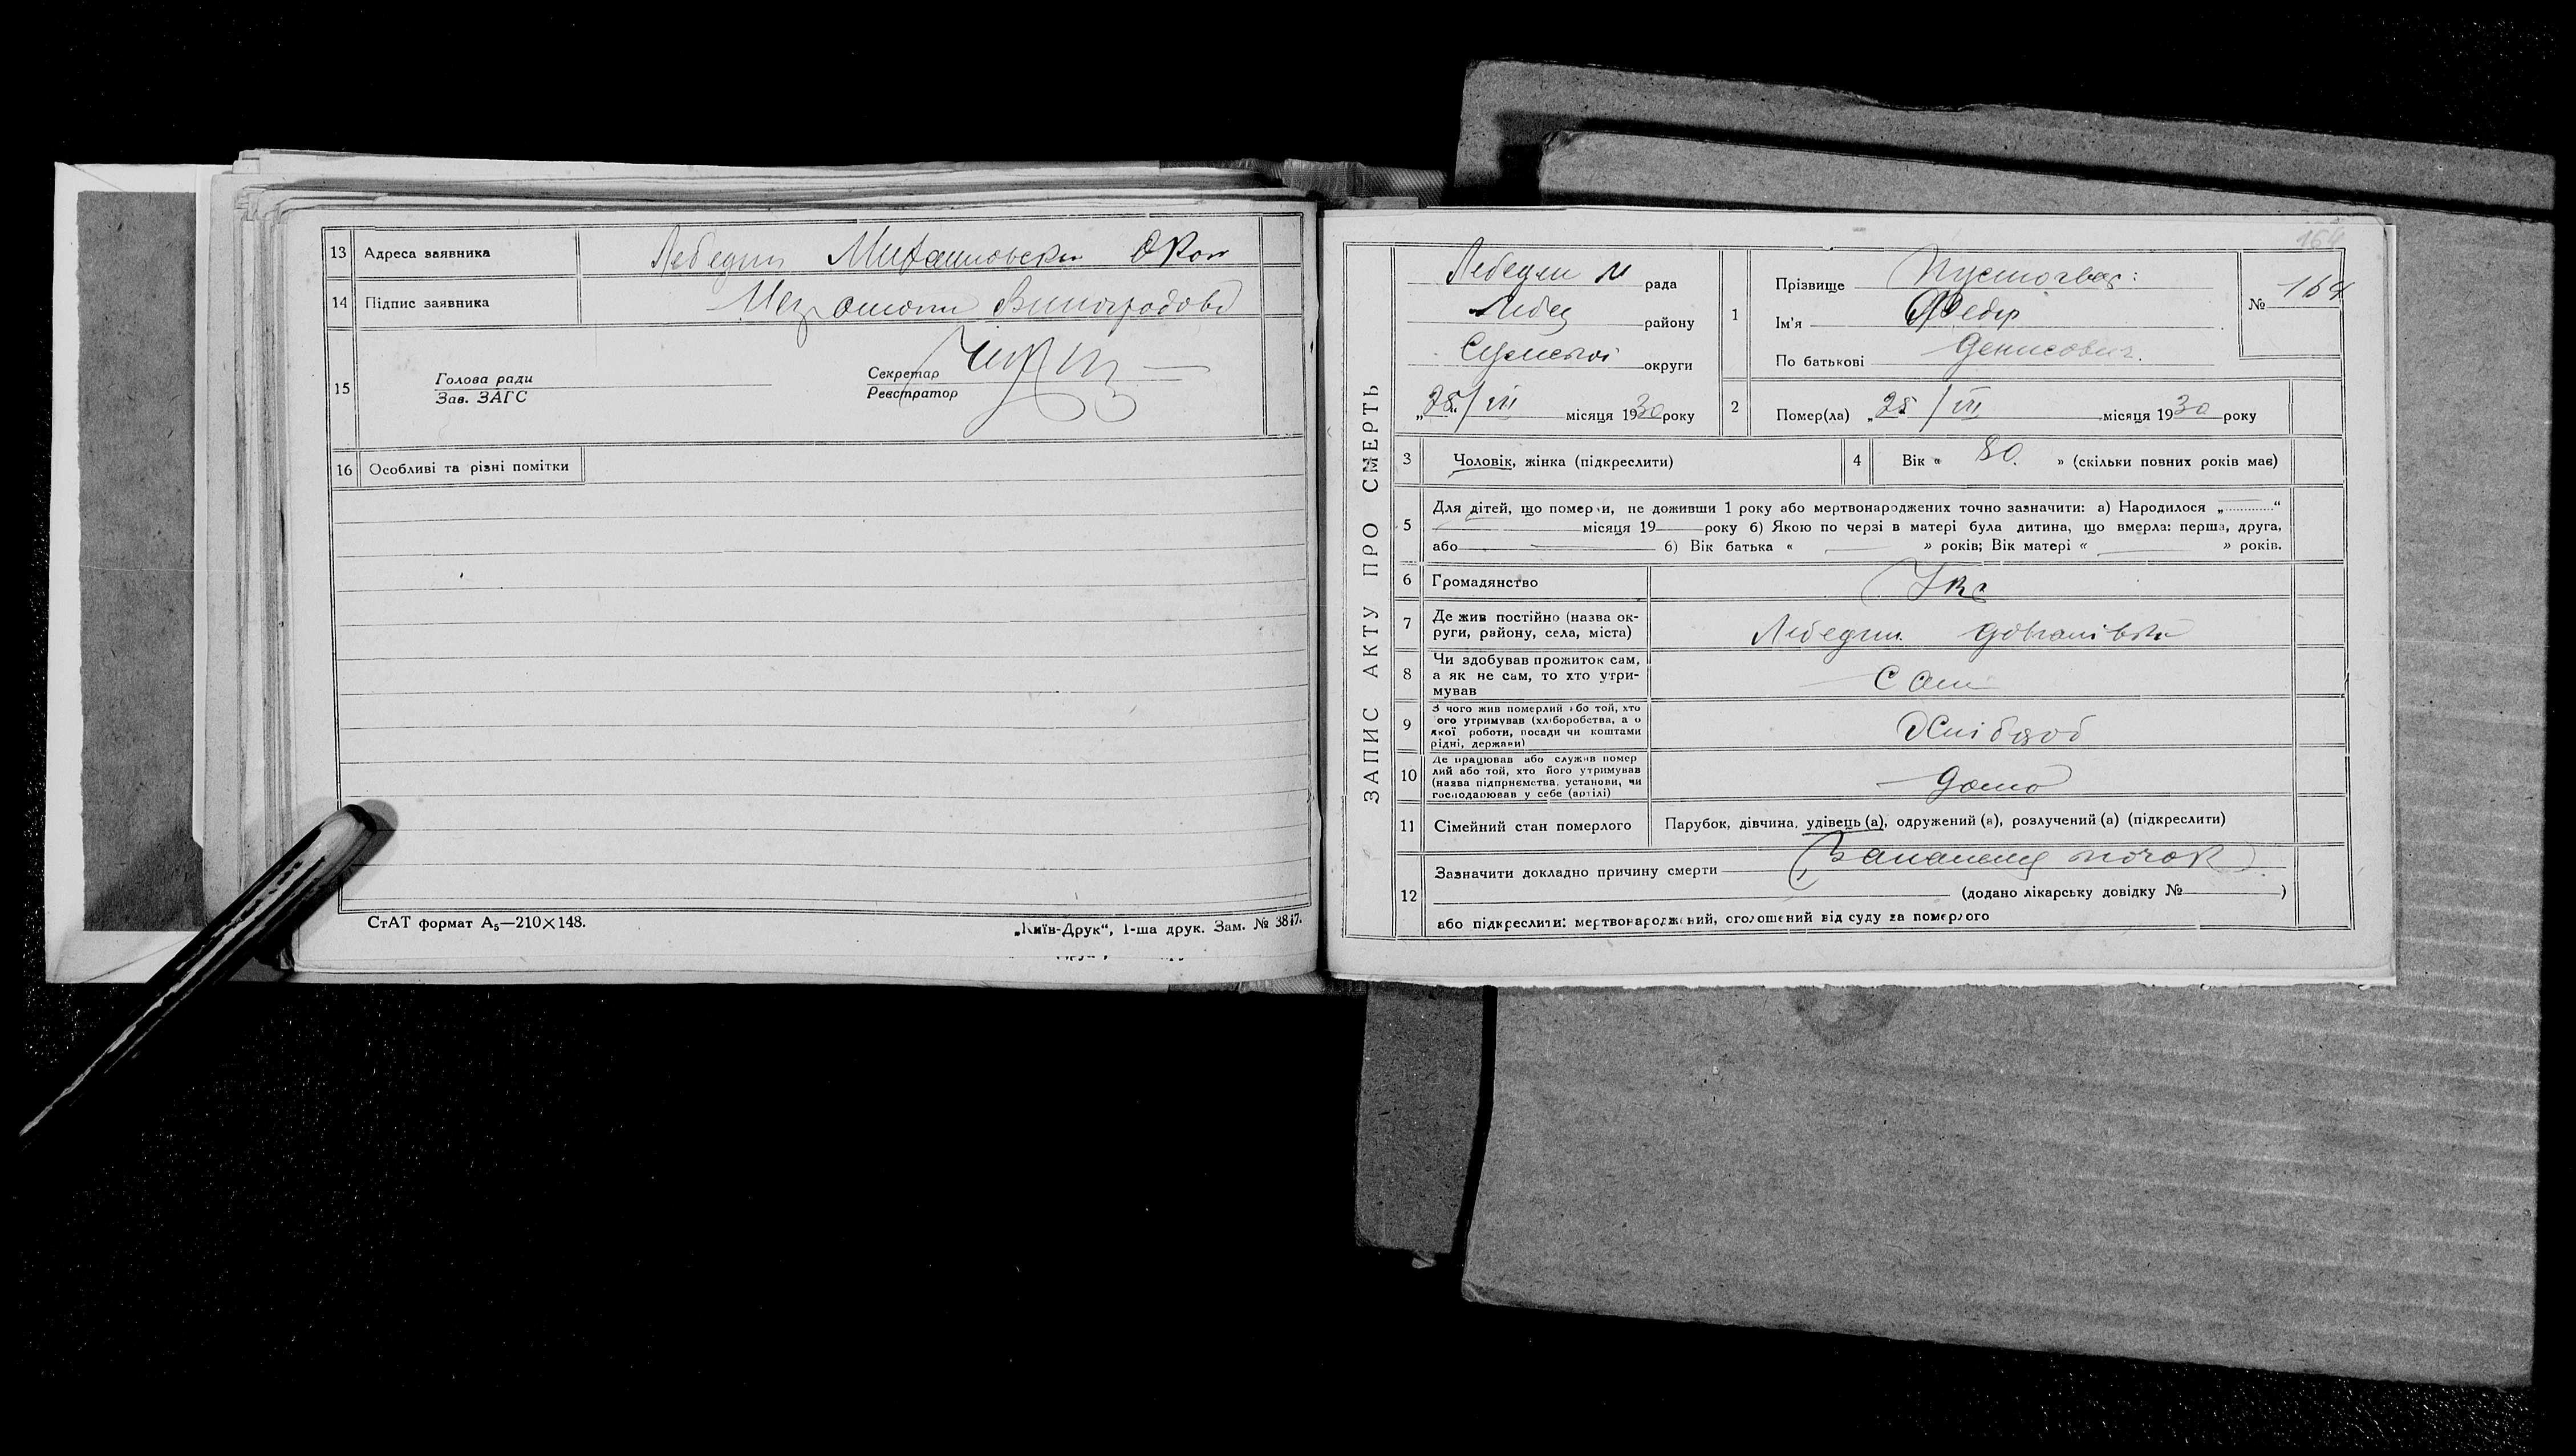 13 Адреса заявника Лебедин Михайловська Окол
14 Підпис заявника Виноградова
15 Голова ради
Зав. ЗАГС
Секретар
Реєстратор
16 Особливі та різні помітки
СтАТ формат А₅—210×148.
„Київ-Друк“, 1-ша друк. Зам. № 3847.
164
ЗАПИС АКТУ ПРО СМЕРТЬ
Лебедин М рада
Лебед району
Сумської округи
„28“/VII місяця 1930 року
1 Прізвище
Ім'я Федір
По батькові Денисович.
№ 164
2 Помер(ла) „28/VII місяця 1930 року
3 Чоловік, жінка (підкреслити)
4 Вік « 80. » (скільки повних років має)
5 Для дітей, що померли, не доживши 1 року або мертвонароджених точно зазначити: а) Народилося „ “
місяця 19 року б) Якою по черзі в матері була дитина, що вмерла: перша, друга,
або б) Вік батька « » років; Вік матері « » років.
6 Громадянство Укр
7 Де жив постійно (назва ок-
руги, району, села, міста) Лебедин
8 Чи здобував прожиток сам,
а як не сам, то хто утри-
мував Сам
9 З чого жив померлий або той, хто
його утримував (хліборобства, а о
якої роботи, посади чи коштами
рідні, держави) Хлібороб
10 Де працював або служив помер
лий або той, хто його утримував
(назва підприємства, установи, чи
господарював у себе (артілі) Дома
11 Сімейний стан померлого Парубок, дівчина, удівець (а), одружений (а), розлучений (а) (підкреслити)
12 Зазначити докладно причину смерти Запалення нирок
(додано лікарську довідку № )
або підкреслити: мертвонароджений, оголошений від суду за померлого